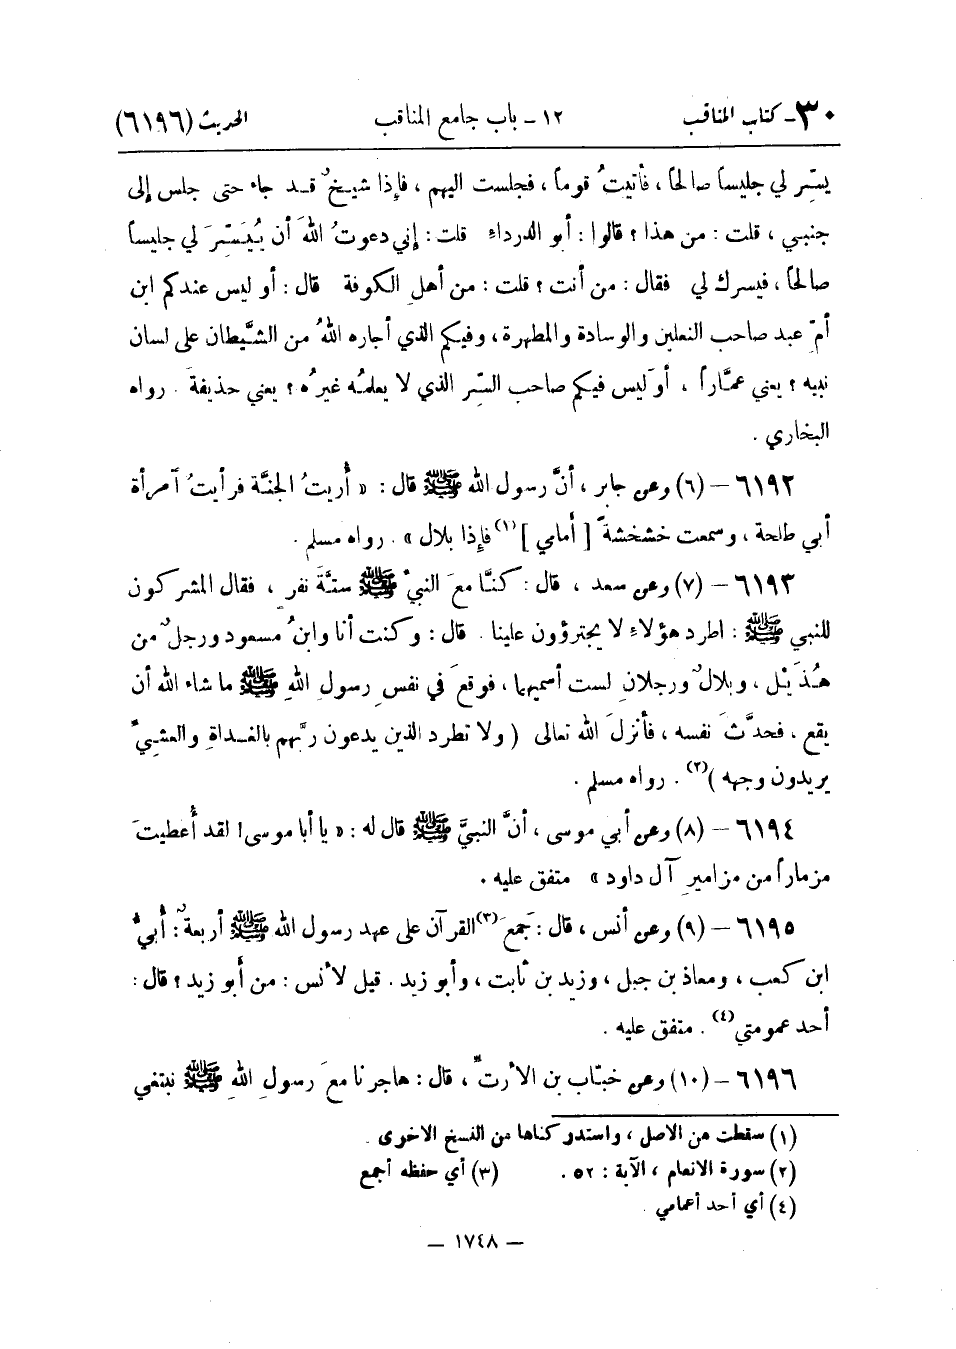 ٣٠ـ كتاب المناقب ١٢ ـ باب جامع المناقب الحديث (٦١٩٦)
يسّر لي جليساً صالحاً ، فأتيتُ قوماً ، فجلست اليهم ، فإذا شيخٌ قد جاء حتى جلس إلى
جنبي ، قلت : من هذا ؟ قالوا : أبو الدرداءِ قلت : إني دعوتُ اللهَ أن يُيَسِّرَ لي جليساً
صالحاً ، فيسرك لي فقال : من أنت ؟ قلت : من أهلِ الكوفة قال : أو ليس عندكم ابن
أمّ عبد صاحب النعلين والوسادة والمطهرة ، وفيكم الذي أجاره اللهُ من الشَّيطان على لسان
نبيه ؟ يعني عمَّاراً ، أوَليس فيكم صاحب السّر الذي لا يعلمُه غيرُه ؟ يعني حذيفةَ . رواه
البخاري .
٦١٩٢ – (٦) وعن جابر ، أنَّ رسول الله ﷺ قال : « أُريتُ الجنَّة فرأيتُ آمرأة
أبي طلحة ، وسمعت خشخشةً [ أمامي ](١) فإذا بلال » . رواه مسلم .
٦١٩٣ – (٧) وعن سعد ، قال : كنَّا معَ النبيّ ﷺ ستَّةَ نفرٍ ، فقال المشركون
للنبي ﷺ : اطرد هؤلاءِ لا يجترؤون علينا . قال : وكنت أنا وابنُ مسعود ورجلٌ من
هُذَيْل ، وبلالٌ ورجلانِ لست أسميهما ، فوقعَ في نفسِ رسولِ اللهِ ﷺ ما شاء الله أن
يقع ، فحدَّثَ نفسه ، فأنزلَ الله تعالى ( ولا تطرد الذين يدعون ربَّهم بالغداةِ والعشيّ
يريدون وجهه )(٢) . رواه مسلم .
٦١٩٤ – (٨) وعن أبي موسى ، أنَّ النبيَّ ﷺ قال له : « يا أبا موسى! لقد أُعطيتَ
مزماراً من مزاميرِ آل داود » متفق عليه .
٦١٩٥ – (٩) وعن أنس ، قال : جَمعَ(٣)القرآن على عهد رسول الله ﷺ أربعةٌ : أُبيُّ
ابن كعب ، ومعاذ بن جبل ، وزيد بن ثابت ، وأبو زيد . قيل لأنس : من أبو زيد ؟ قال :
أحد عمومتي(٤) . متفق عليه .
٦١٩٦ – (١٠) وعن خبّاب بن الأرتّ ، قال : هاجرنا معَ رسولِ اللهِ ﷺ نبتغي
(١) سقطت من الاصل ، واستدركناها من النسخ الاخرى .
(٢) سورة الانعام ، الآية : ٥٢ . (٣) أي حفظه أجمع
(٤) أي أحد أعمامي .
– ١٧٤٨ –